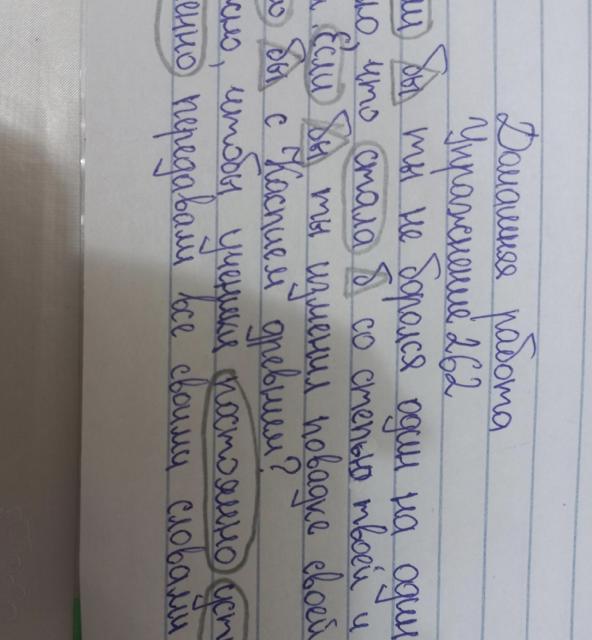 Домашняя работа
Упражнение 262
бы ты не боролся один на один
что стала б со степью твоей и
Если бы ты изменил повадке своей
бы с Каспием древнем?
чтобы ученики постоянно
передавали все своими словами